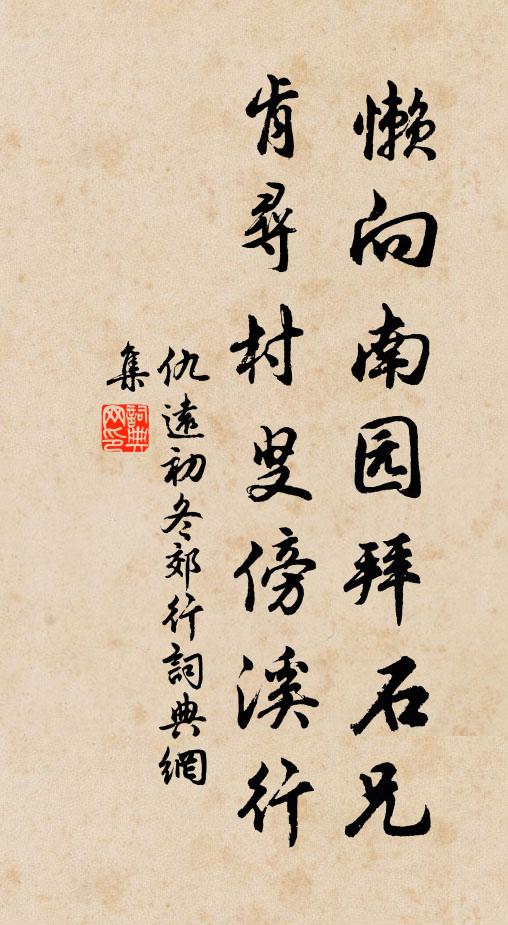 懒向南园拜石兄
肯尋村叟傍溪行
仇遠初冬郊行詞典網
集
詞典网印